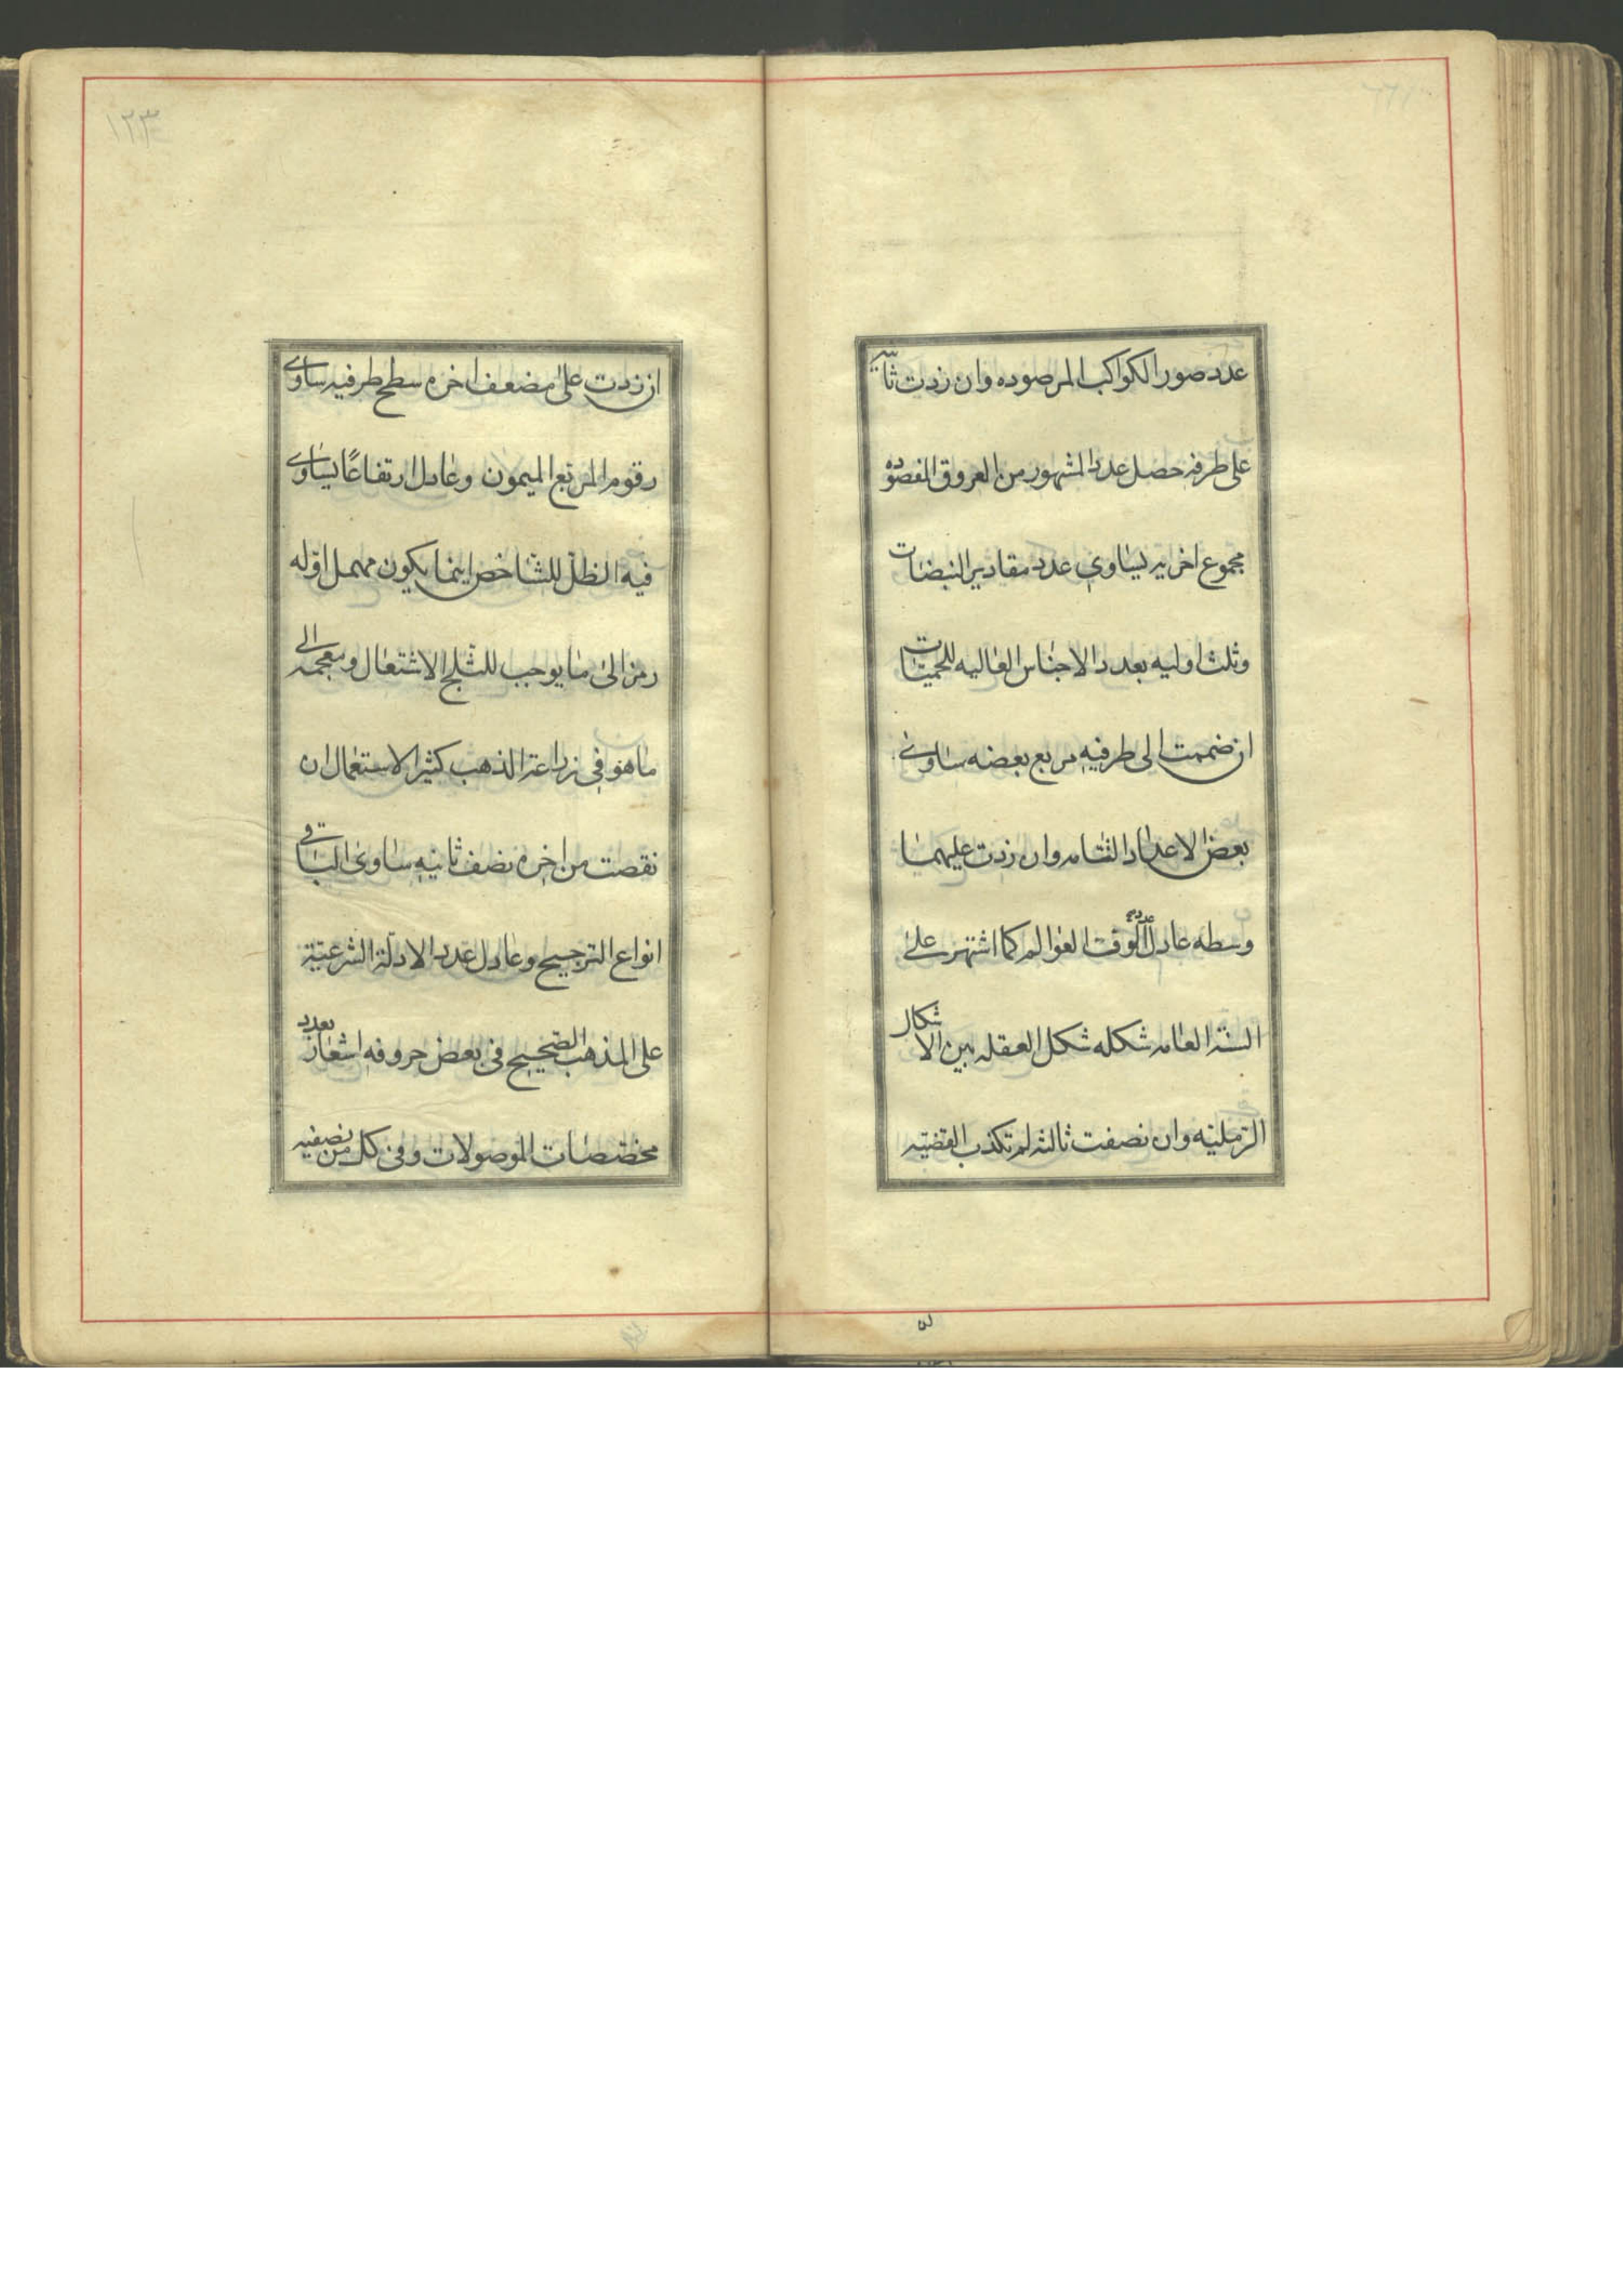 عدد صور الكواكب المرصوده وان زدت ثانيه
على طرفه حصل عدد المشهور من العروق المفصوده
مجموع اخريه يساوي عدد مقادير النبضات
وثلث اوليه بعدد الاجناس العاليه للحميات
ان ضممت الى طرفيه مربع بعضه ساوى
بعض الاعداد التامه وان زدت عليهما
وسطه عادل عدد الوف العوالم كما اشتهر على
السنة العامه شكله شكل العقله بين الاشكال
الرمليه وان نصفت ثالثه لم تكذب القضيه
١٢٣
ان زدت على مضعف اخره سطح طرفيه ساوى
رقوم المربع الميمون وعادل ارتفاعًا يساوى
فيه الظل للشاخص اينما يكون مهمل اوله
رمز الى ما يوجب للثلج الاشتعال ومعجمه الى
ما هو في زراعة الذهب كثير الاستعمال ان
نقصت من اخره نصف ثانيه ساوى الباقي
انواع الترجيح وعادل عدد الادلة الشرعية
على المذهب الصحيح في بعض حروفه اشعار بعدد
مختصات الموصولات وفي كل من نصفيه